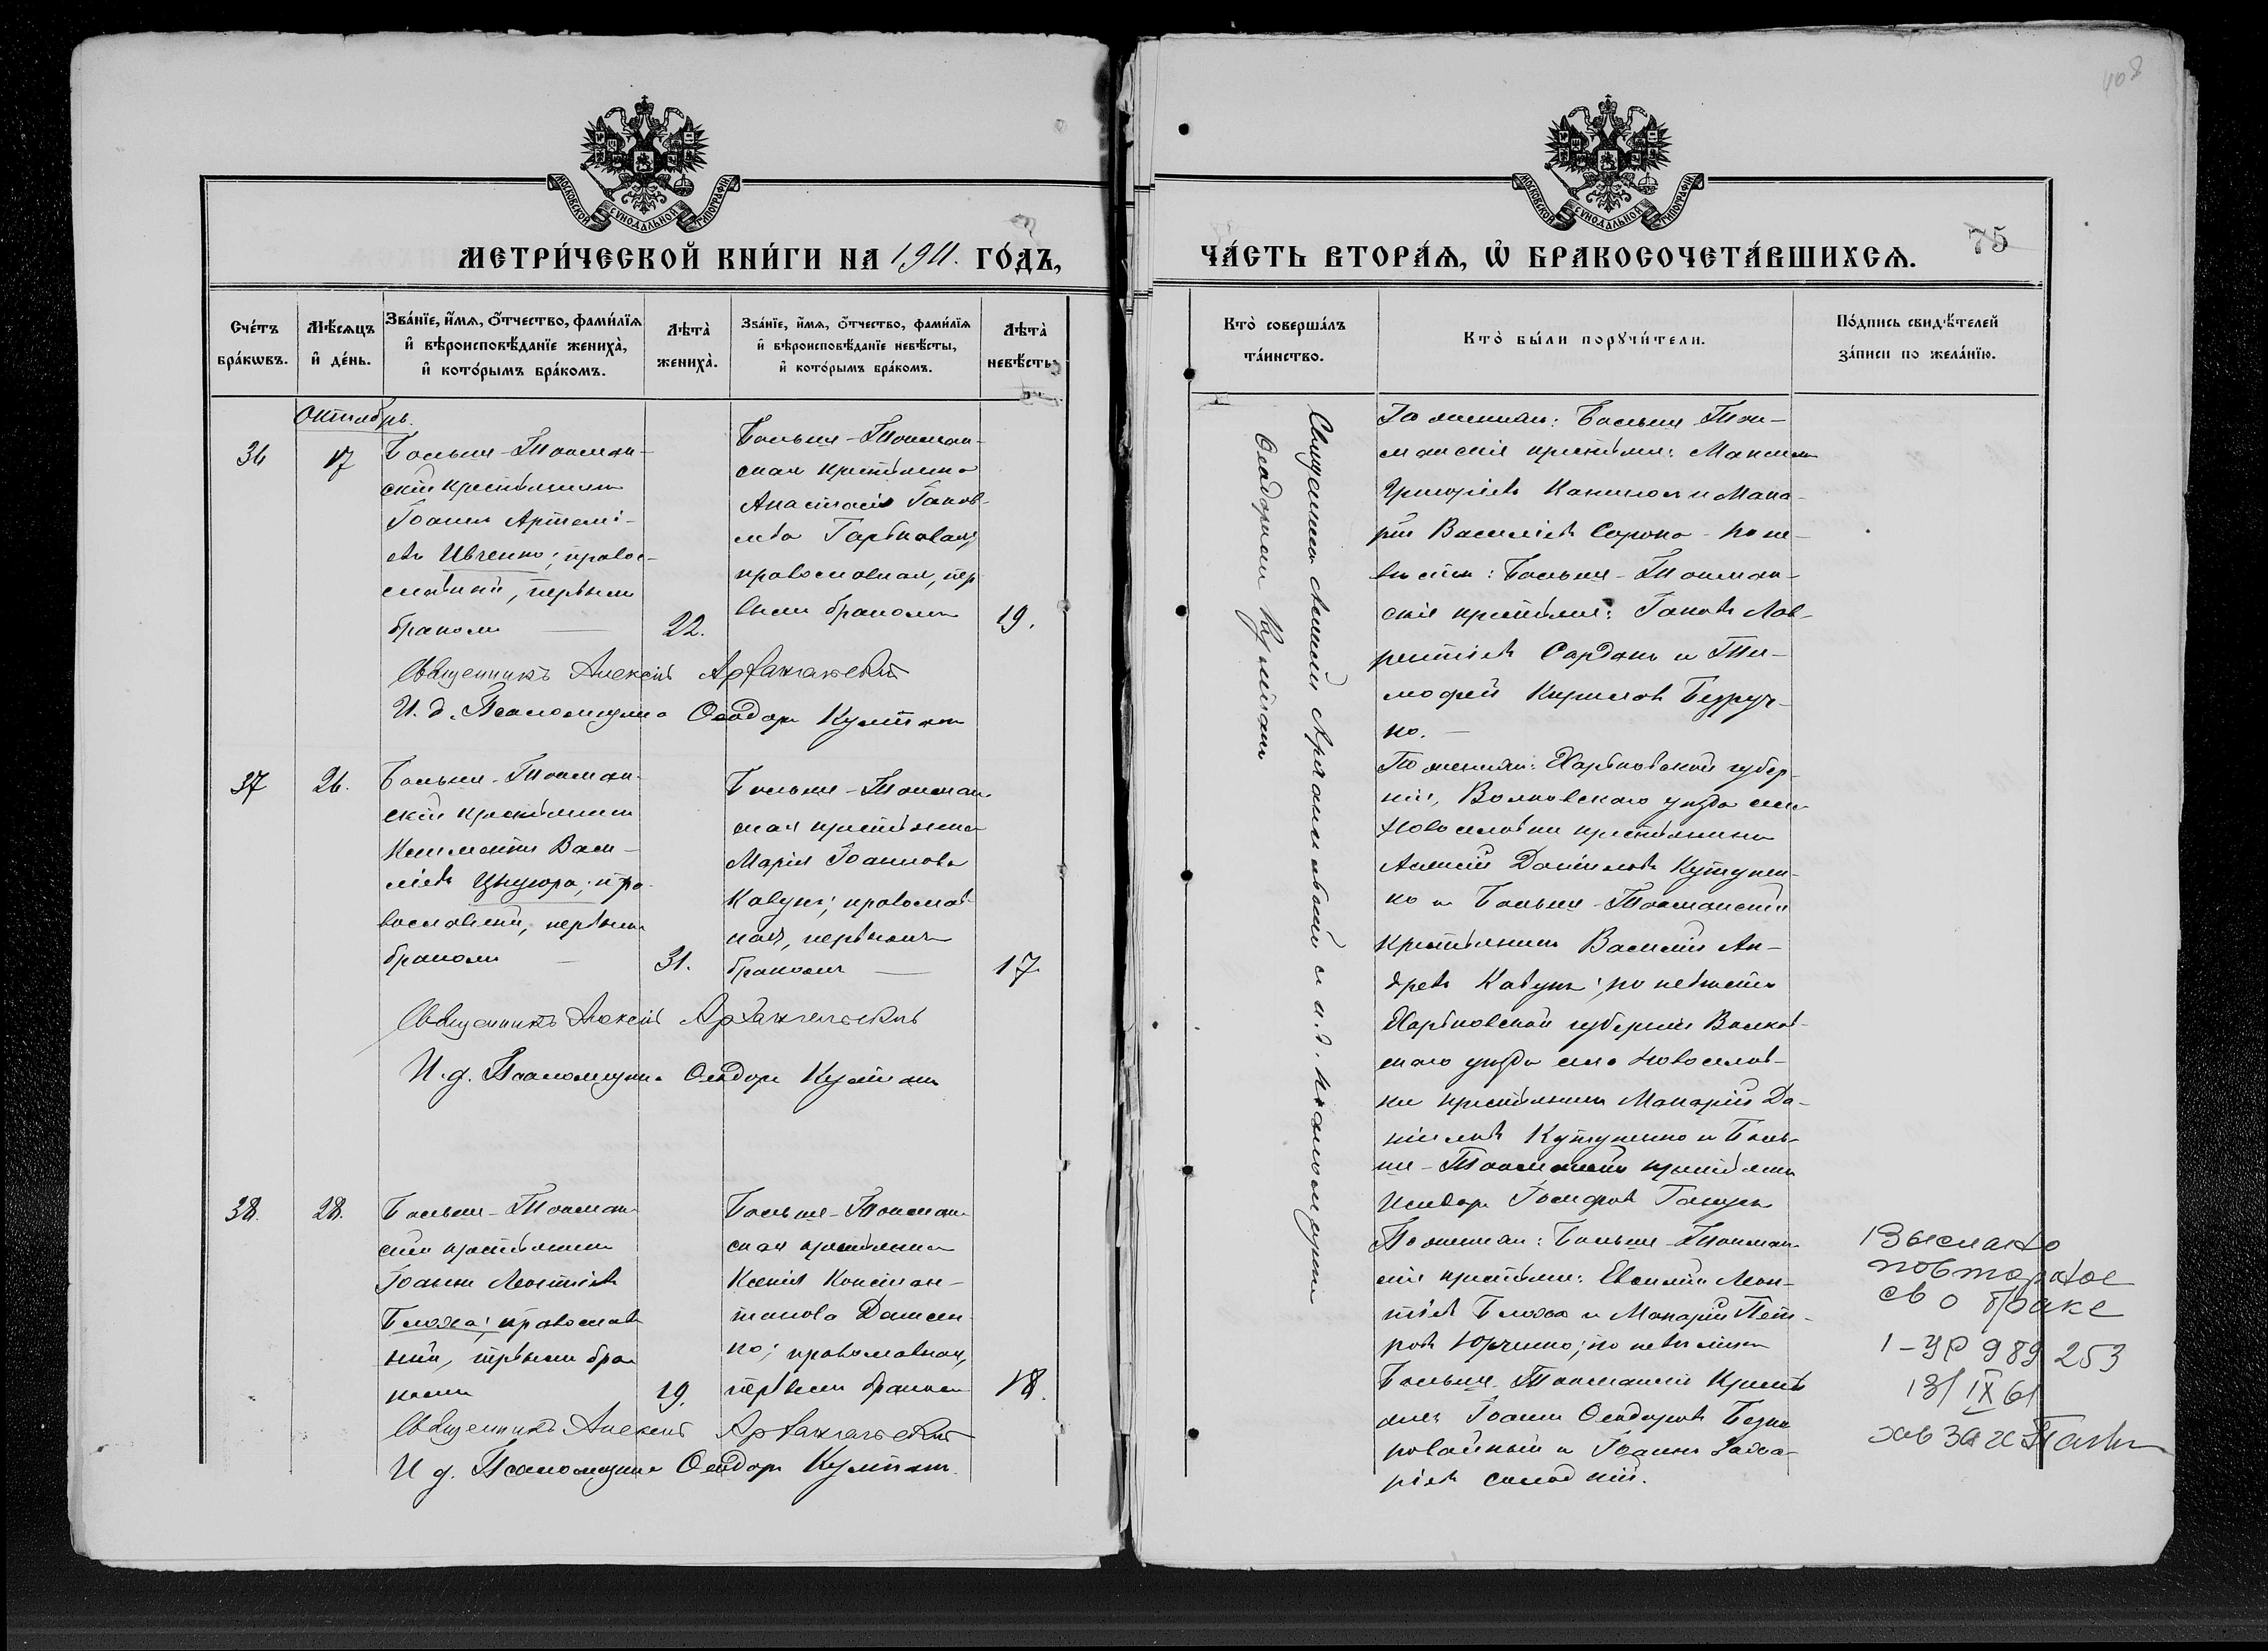 408
МОСКОВСКОЙ СѴНОДАЛЬНОЙ ТИПОГРАФІИ
МЕТРИ́ЧЕСКОЙ КНИ́ГИ НА 1911. ГО́ДЪ,
Сче́тъ бра́кѡвъ.
Мѣ́сяцъ и҆ де́нь.
Зва́нїе, и҆́мѧ, ѻ҆́тчество, фами́лїѧ
и҆ вѣроисповѣ́данїе жениха̀,
и҆ кото́рымъ бра́комъ.
Лѣ́та̀ жениха̀.
Зва́нїе, и҆́мѧ, ѻ҆́тчество, фами́лїѧ
и҆ вѣроисповѣ́данїе невѣ́сты,
и҆ кото́рымъ бра́комъ.
Лѣ́та̀ невѣ́сты
Октябрь.
36
17
Больше-Токмак-
скій крестьянинъ
Іоаннъ Артемі-
евъ Ивченко; правос-
лавный, первымъ
бракомъ —
22.
Больше-Токмак-
ская крестьянка
Анастасія Іаков-
лева Гарькавая,
православная, пер-
вымъ бракомъ
19.
Священникъ Алексій Архангельскій
И. д. Псаломщика Ѳеодоръ Култкам
37
26.
Больше-Токмак-
скій крестьянинъ
Климентъ Васи-
ліевъ Цыцюра; пра-
вославный, первымъ
бракомъ —
31.
Больше-Токмак-
ская крестьянка
Марія Іоаннова
Кавунъ; православ-
ная, первымъ
бракомъ —
17.
Священникъ Алексій Архангельскій
И. д. Псаломщика Ѳеодоръ
38.
28.
Больше-Токмак-
скій крестьянинъ
Іоаннъ Леонтіевъ
Блоха; православ-
ный, первымъ бра-
комъ
19.
Больше-Токмак-
ская крестьянка
Ксенія Констан-
тинова Даценко;
православная,
первымъ бракомъ
18.
Священникъ Алексій Архангельскій
И д. Псаломщика Ѳеодоръ
МОСКОВСКОЙ СѴНОДАЛЬНОЙ ТИПОГРАФІИ
ЧА́СТЬ ВТОРА́Ѧ, Ѡ҆ БРАКОСОЧЕТА́ВШИХСѦ.
75
Кто̀ соверша́лъ та́инство.
Кто̀ бы́ли порꙋчи́тели.
По́дпись свидѣ́телей
за́писи по жела́нїю.
Священникъ Алексій Архангельскій и и. д. псаломщика
Ѳеодоръ
По женихѣ: Больше-Ток-
макскіе крестьяне: Максимъ
Григоріевъ и Мака-
рій Василіевъ Сорока - по не-
вѣстѣ: Больше-Токмак-
скіе крестьяне: Іаковъ Лав-
рентіевъ Сардакъ и Ти-
мофей Кирилловъ Безруч-
ко. —
По женихѣ: Харьковской губер-
ніи, Волковского уѣзда села
Новоселовки крестьянинъ
Алексій Даніиловъ
и Больше-Токмакскій
крестьянинъ Василій Ан-
древъ Кавунъ; по невѣстѣ
Харьковской губерніи Волков-
ского уѣзда села Новоселов-
ки крестьянинъ Макарій Да-
ніиловъ и Боль-
ше-Токмакскій крестьянинъ
Исидоръ Іосифовъ
По женихѣ: Больше-Токмак-
скіе крестьяне: Евсилій Леон-
тіевъ Блоха и Макарій Пет-
ровъ Юрченко; по невѣстѣ
Больше-Токмакскіе крестья-
не: Іоаннъ Ѳеодоровъ
и Іоаннъ Заха-
ріевъ Солодкій.
Выслано
повторное
св о браке
1-УР 989253
13/IX 61
зав ЗАГС